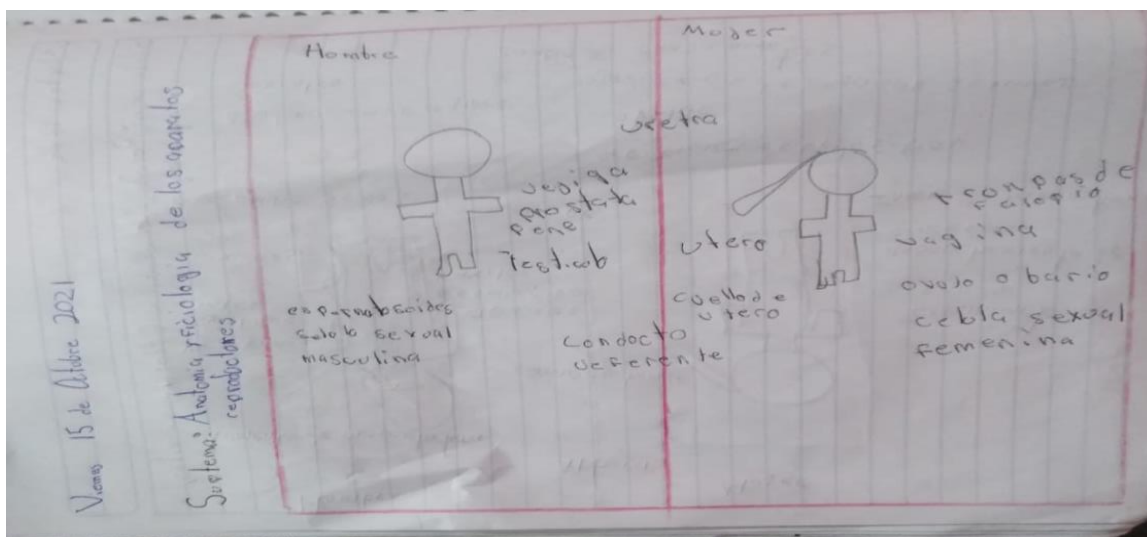 Viernes 15 de Octubre 2021
Suptema: Anatomia y ficiologia de los aparatos
reproductores
Hombre
uretra
vegiga
prostata
pene
Testicob
esparmatosoides
selola sexual
masculina
condocto
deferente
Mojer
utero
cuello de
utero
tronpas de
falopio
vagina
ovulo o bario
cebla sexual
femenina